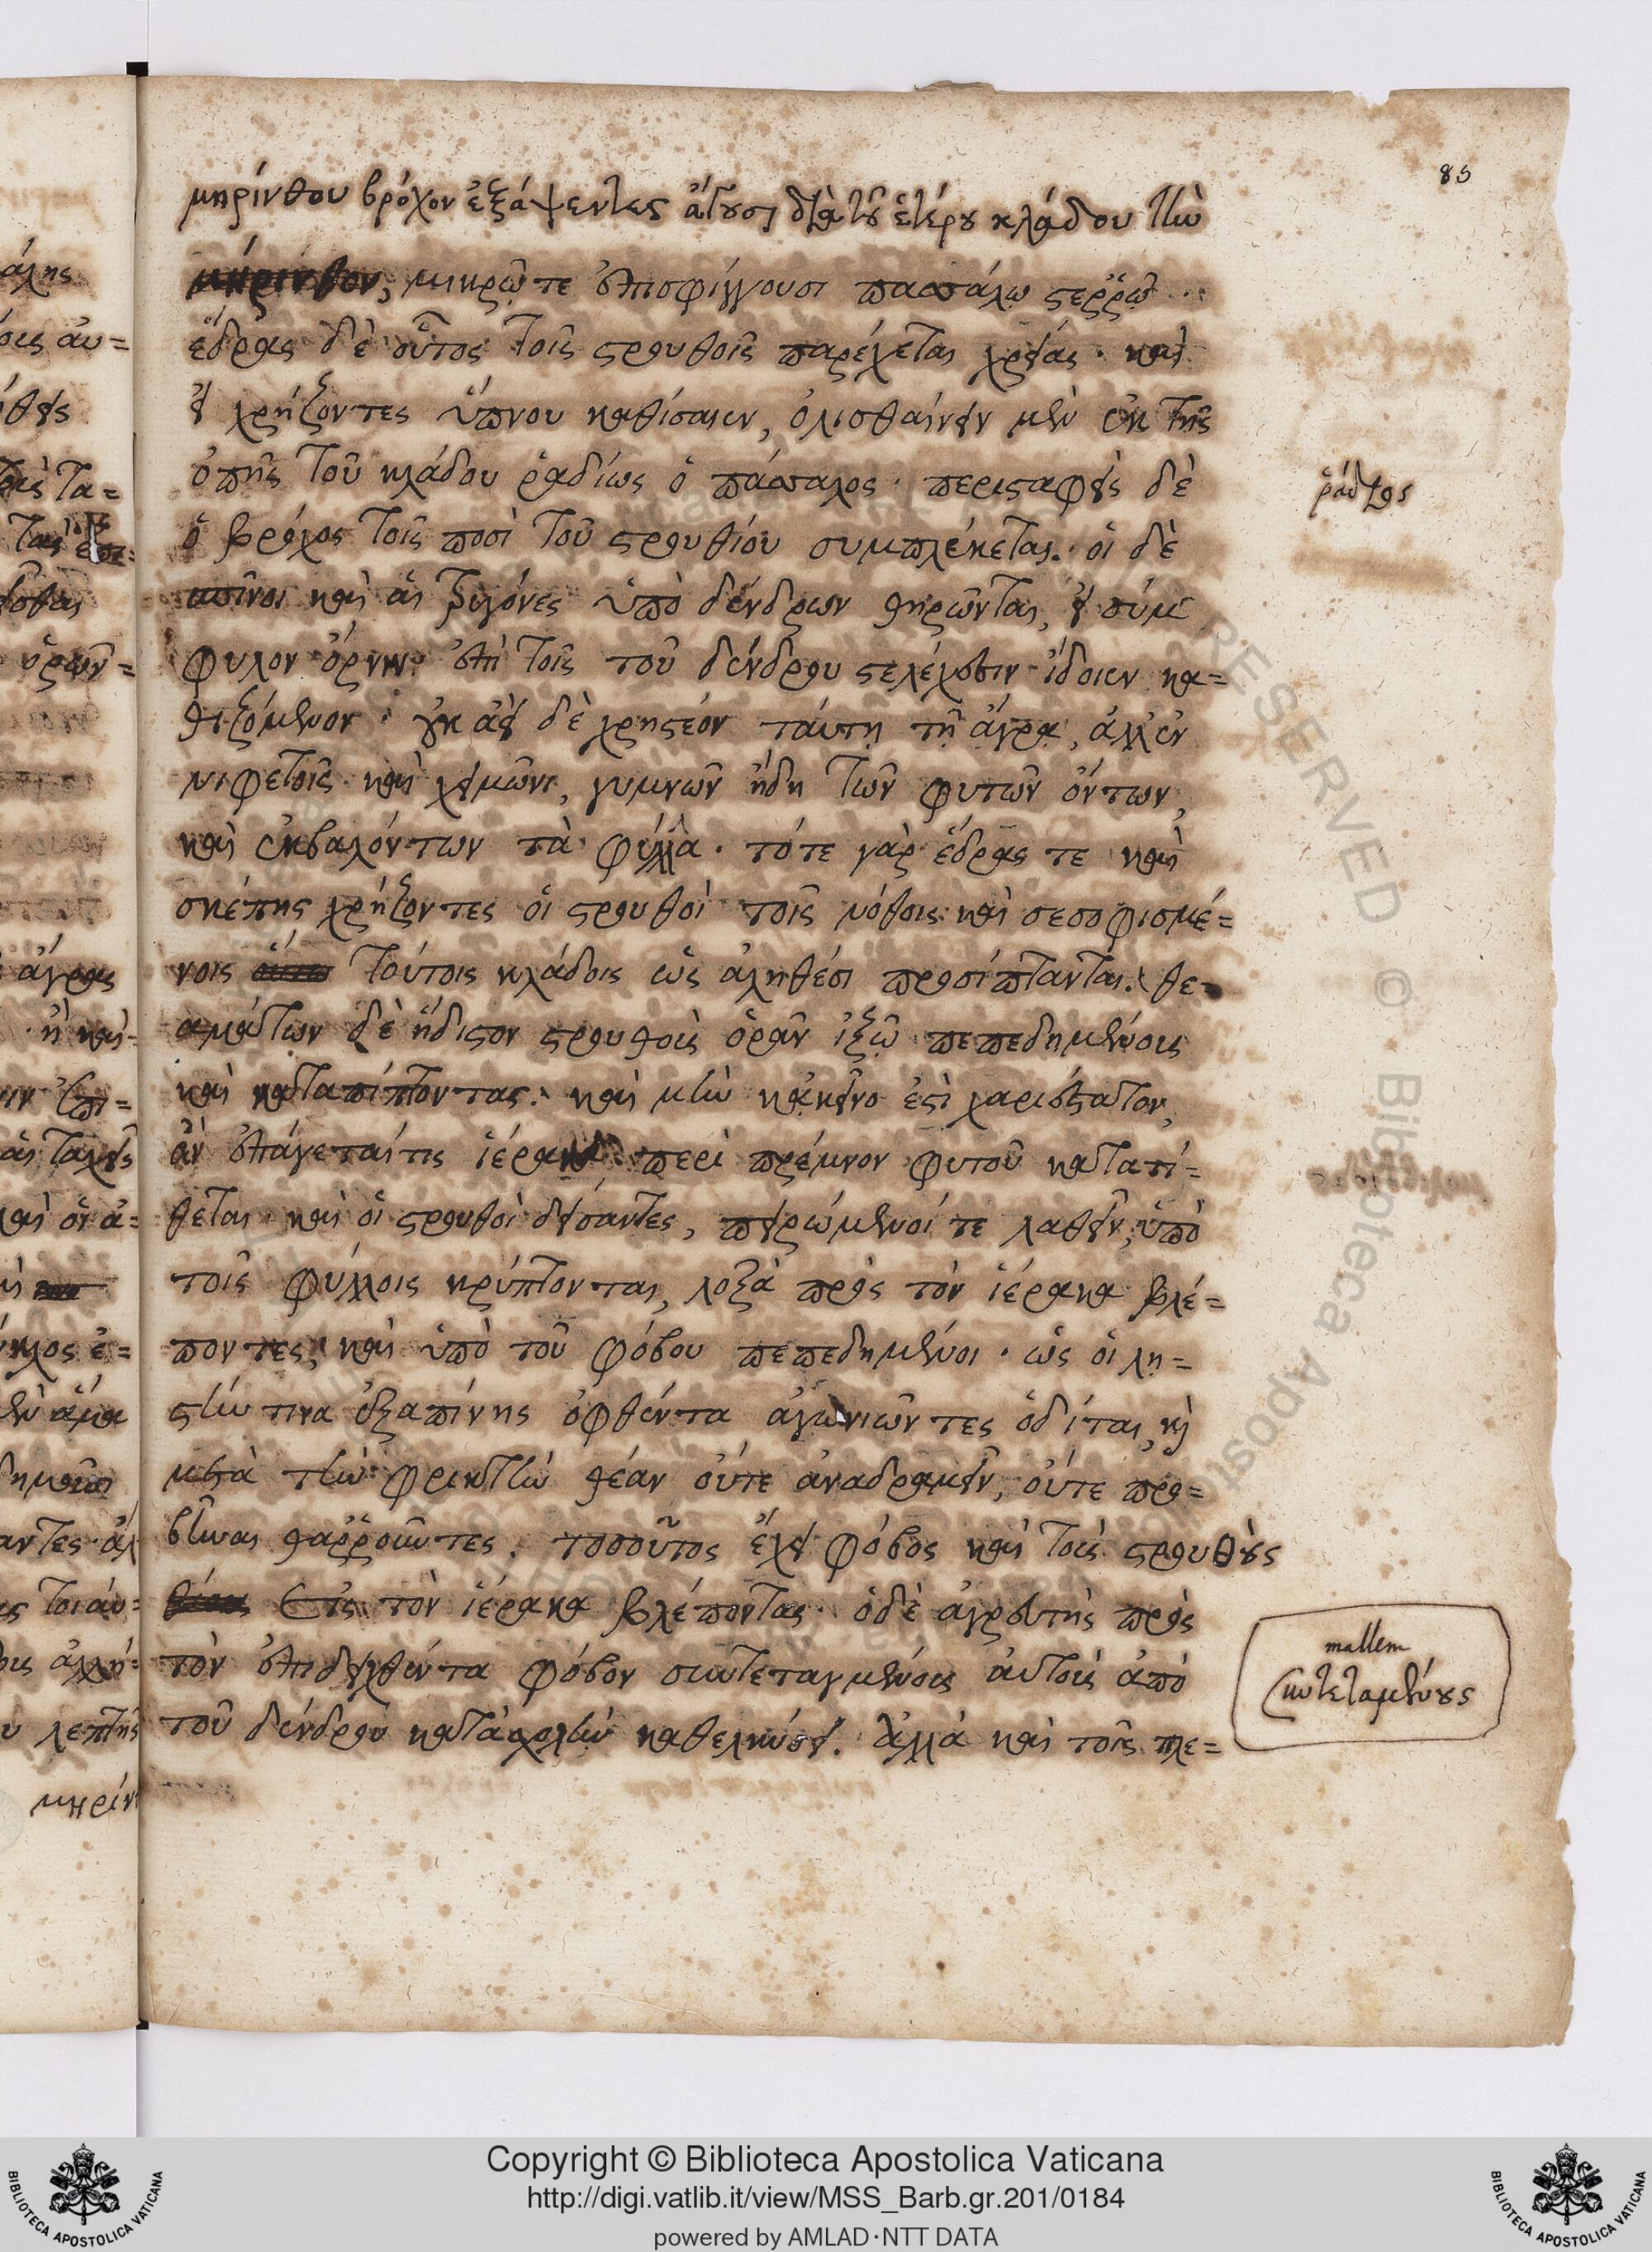 85
μηρίνθου βρόχον ἐξάψεντες ἄγουσι διὰ τοῦ ἑτέρου κλάδου τὴν
μήρινθον, μικρῷ τε ἐπισφίγγουσι πασσάλῳ στεῤῥῷ
ἕδρας δὲ οὗτος τοῖς στρουθοῖς παρέχεται χρείας. καὶ
εἰ χρήζοντες ὕπνου καθίσαιεν, ὀλισθαίνειν μὲν ἐκ τῆς
ὀπῆς τοῦ κλάδου ῥαδίως ὁ πάσσαλος. περιστραφεὶς δὲ
ῥάδιος
ὁ βρόχος τοῖς ποσὶ τοῦ στρουθίου συμπλέκεται. οἱ δὲ
σπῖνοι καὶ αἱ τρυγόνες ὑπὸ δένδρων θηρῶνται, εἰ σύμ
φυλον ὄρνιν ἐπὶ τοῖς τοῦ δένδρου στελέχεσιν ἴδοιεν κα=
θιζόμενον. οὐκ ἀεὶ δὲ χρηστέον ταύτῃ τῇ ἄγρᾳ, ἀλλ' ἐν
νιφετοῖς καὶ χειμῶνι, γυμνῶν ἤδη τῶν φυτῶν ὄντων,
καὶ ἐκβαλόντων τὰ φύλλα. τότε γὰρ ἕδρας τε καὶ
σκέπης χρήζοντες οἱ στρουθοὶ τοῖς νόθοις καὶ σεσοφισμέ=
νοις τούτοις κλάδοις ὡς ἀληθέσι προσίπτανται. θε=
αμάτων δὲ ἥδιστον στρουθοὺς ὁρᾶν ἰξῷ πεπεδημένους
καὶ καταπίπτοντας. καὶ μὴν κἀκεῖνο ἐστὶ χαριέστατον,
ἂν ἐπάγεταί τις ἱέρακα περὶ πρέμνον φυτοῦ κατατί=
θεται καὶ οἱ στρουθοὶ δείσαντες, πειρώμενοί τε λαθεῖν, ὑπὸ
τοῖς φύλλοις κρύπτονται, λοξὰ πρὸς τὸν ἱέρακα βλέ=
ποντες, καὶ ὑπὸ τοῦ φόβου πεπεδημένοι. ὡς οἱ λῃ=
στήν τινα ἐξαπίνης ὀφθέντα ἀγωνιῶντες ὁδίται, καὶ
μετὰ τὴν φρικτὴν θέαν οὔτε ἀναδραμεῖν, οὔτε προ=
βῆναι θαῤῥοῦντες. τοσοῦτος ἔχει φόβος καὶ τοὺς στρουθοὺς
εἰς τὸν ἱέρακα βλέποντας. ὁ δὲ ἀγρευτὴς πρὸς
τὸν ἐπιδειχθέντα φόβον συντεταγμένους αὐτοὺς ἀπὸ
mallem
συντεταμένους
τοῦ δένδρου κατὰ σχολὴν καθελκύσει. ἀλλὰ καὶ τοῖς πλε=